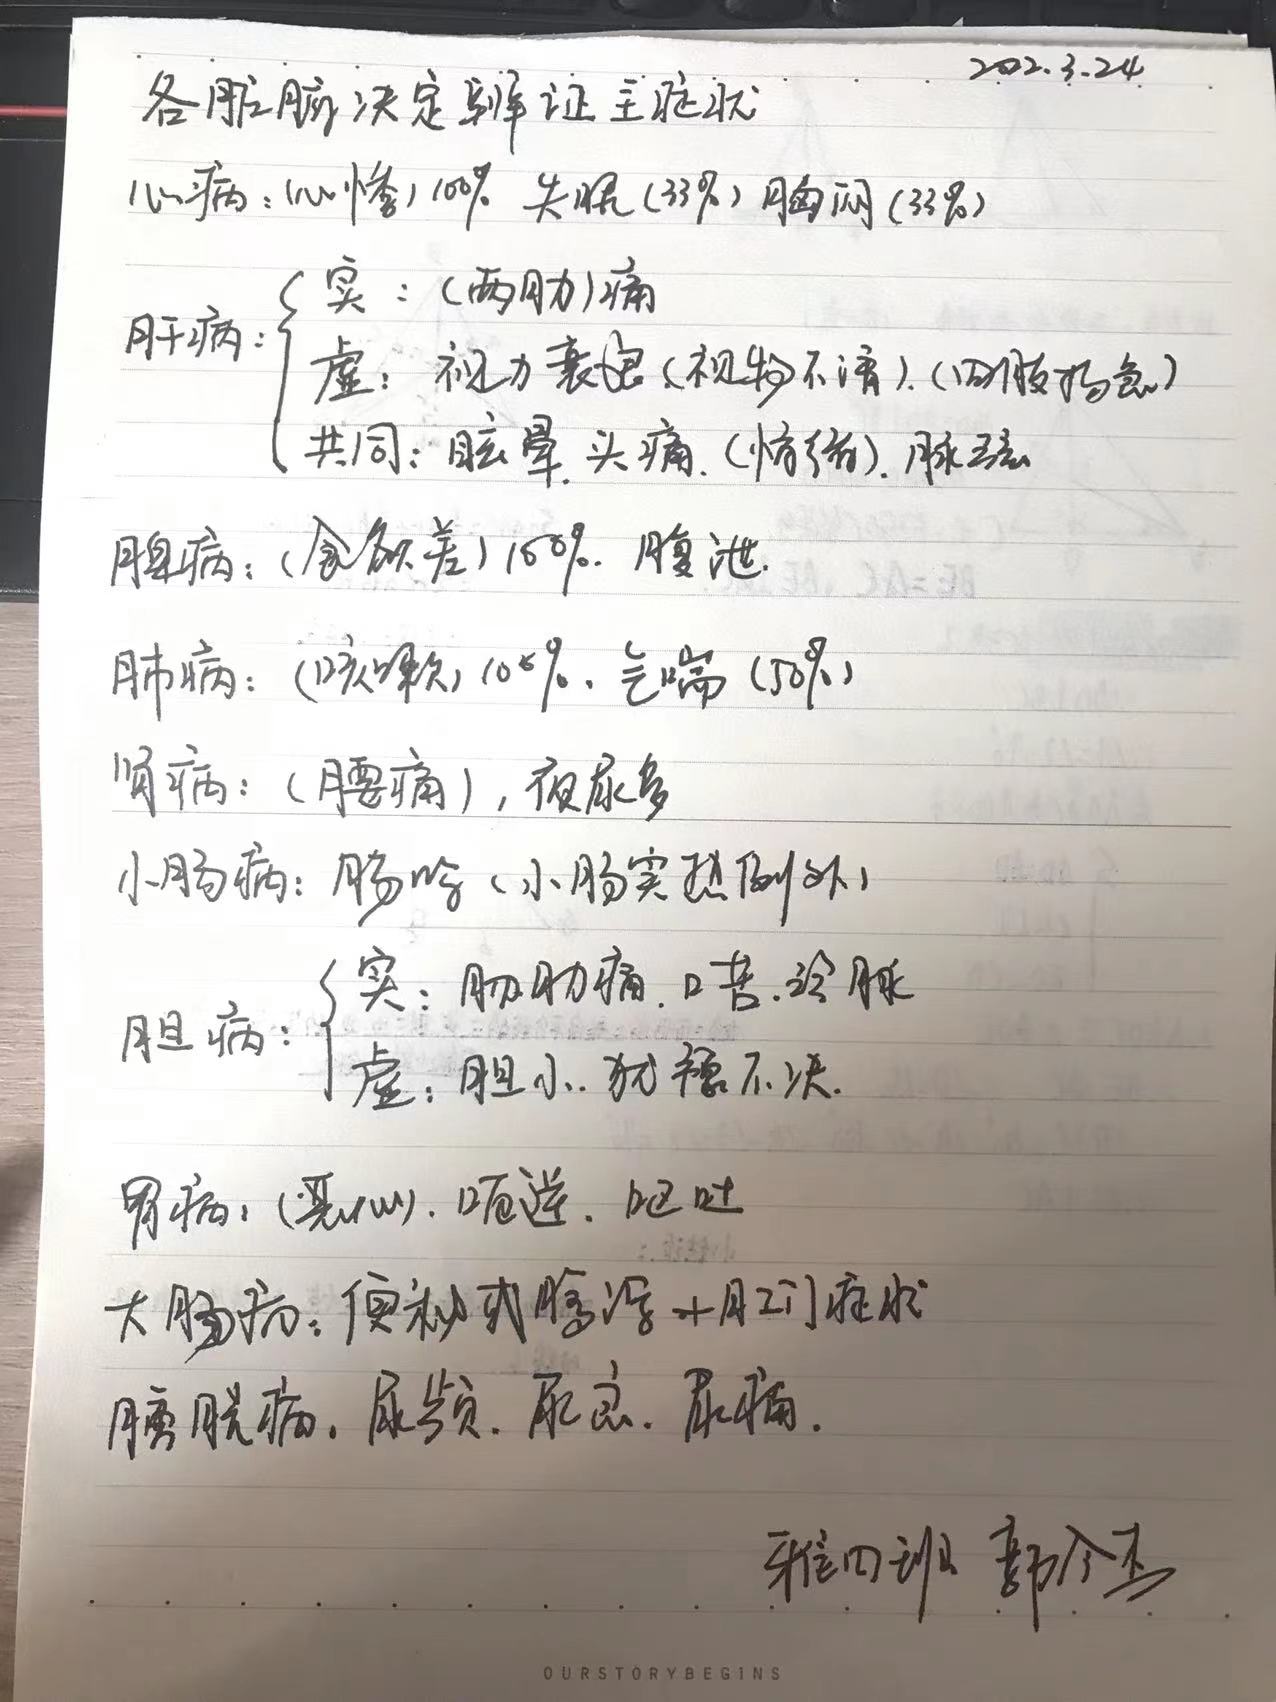 2022.3.24
各脏腑决定辨证主症状
心病：(心悸) 100% 失眠(33%) 胸闷(33%)
实：(两肋)痛
肝病：
虚：视力衰退(视物不清).(四肢拘急)
共同：眩晕.头痛.(情绪).脉弦
脾病：(食欲差) 100%. 腹泄.
肺病：(咳嗽) 100%、气喘(50%)
肾病：(腰痛)，夜尿多
小肠病：肠鸣(小肠实热例外)
实：胁肋痛.口苦.弦脉
胆病：
虚：胆小.犹豫不决.
胃病：(恶心).呃逆.呕吐
大肠病：便秘或腹泻+肛门症状
膀胱病.尿频.尿急.尿痛.
雅四班 郭今杰
OURSTORYBEGINS